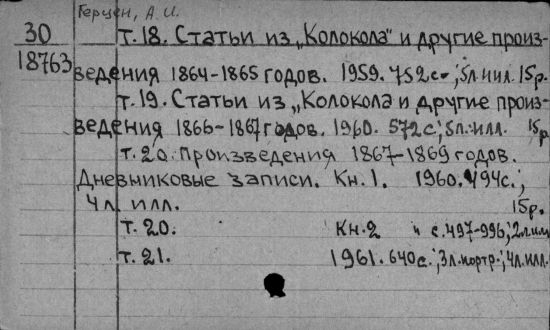 Герцен, А. И.
30 т. 18. Статьи из „Колокола" и другие произ-
18763 ведения 1864-1865 годов. 1959. 752 с.; 5 л. илл. 15 р.
т. 19. Статьи из „Колокола и другие произ-
ведения 1866-1867 годов. 1960. 572 с.; 5 л. илл. 15 р.
т. 20. Произведения 1867-1869 годов.
Дневниковые записи. Кн. 1. 1960. 494 с.;
4 л. илл. 15 р.
т. 20. Кн. 2 " с. 497-996; 2 л. илл.
т. 21. 1961. 640 с.; 3 л. портр.; 4 л. илл.